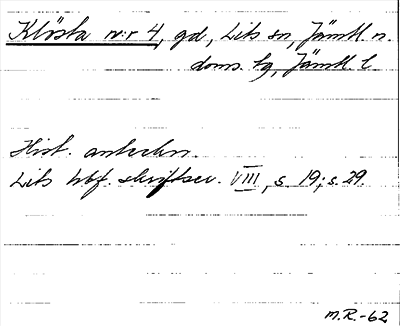 Klösta nr 4, gd, Lits sn, Jämtl. n.
doms. hg, Jämtl. l.
Hist. anteckn.
Lits hbf. skriftser. VIII, s. 19; s. 29.
M.R.-62